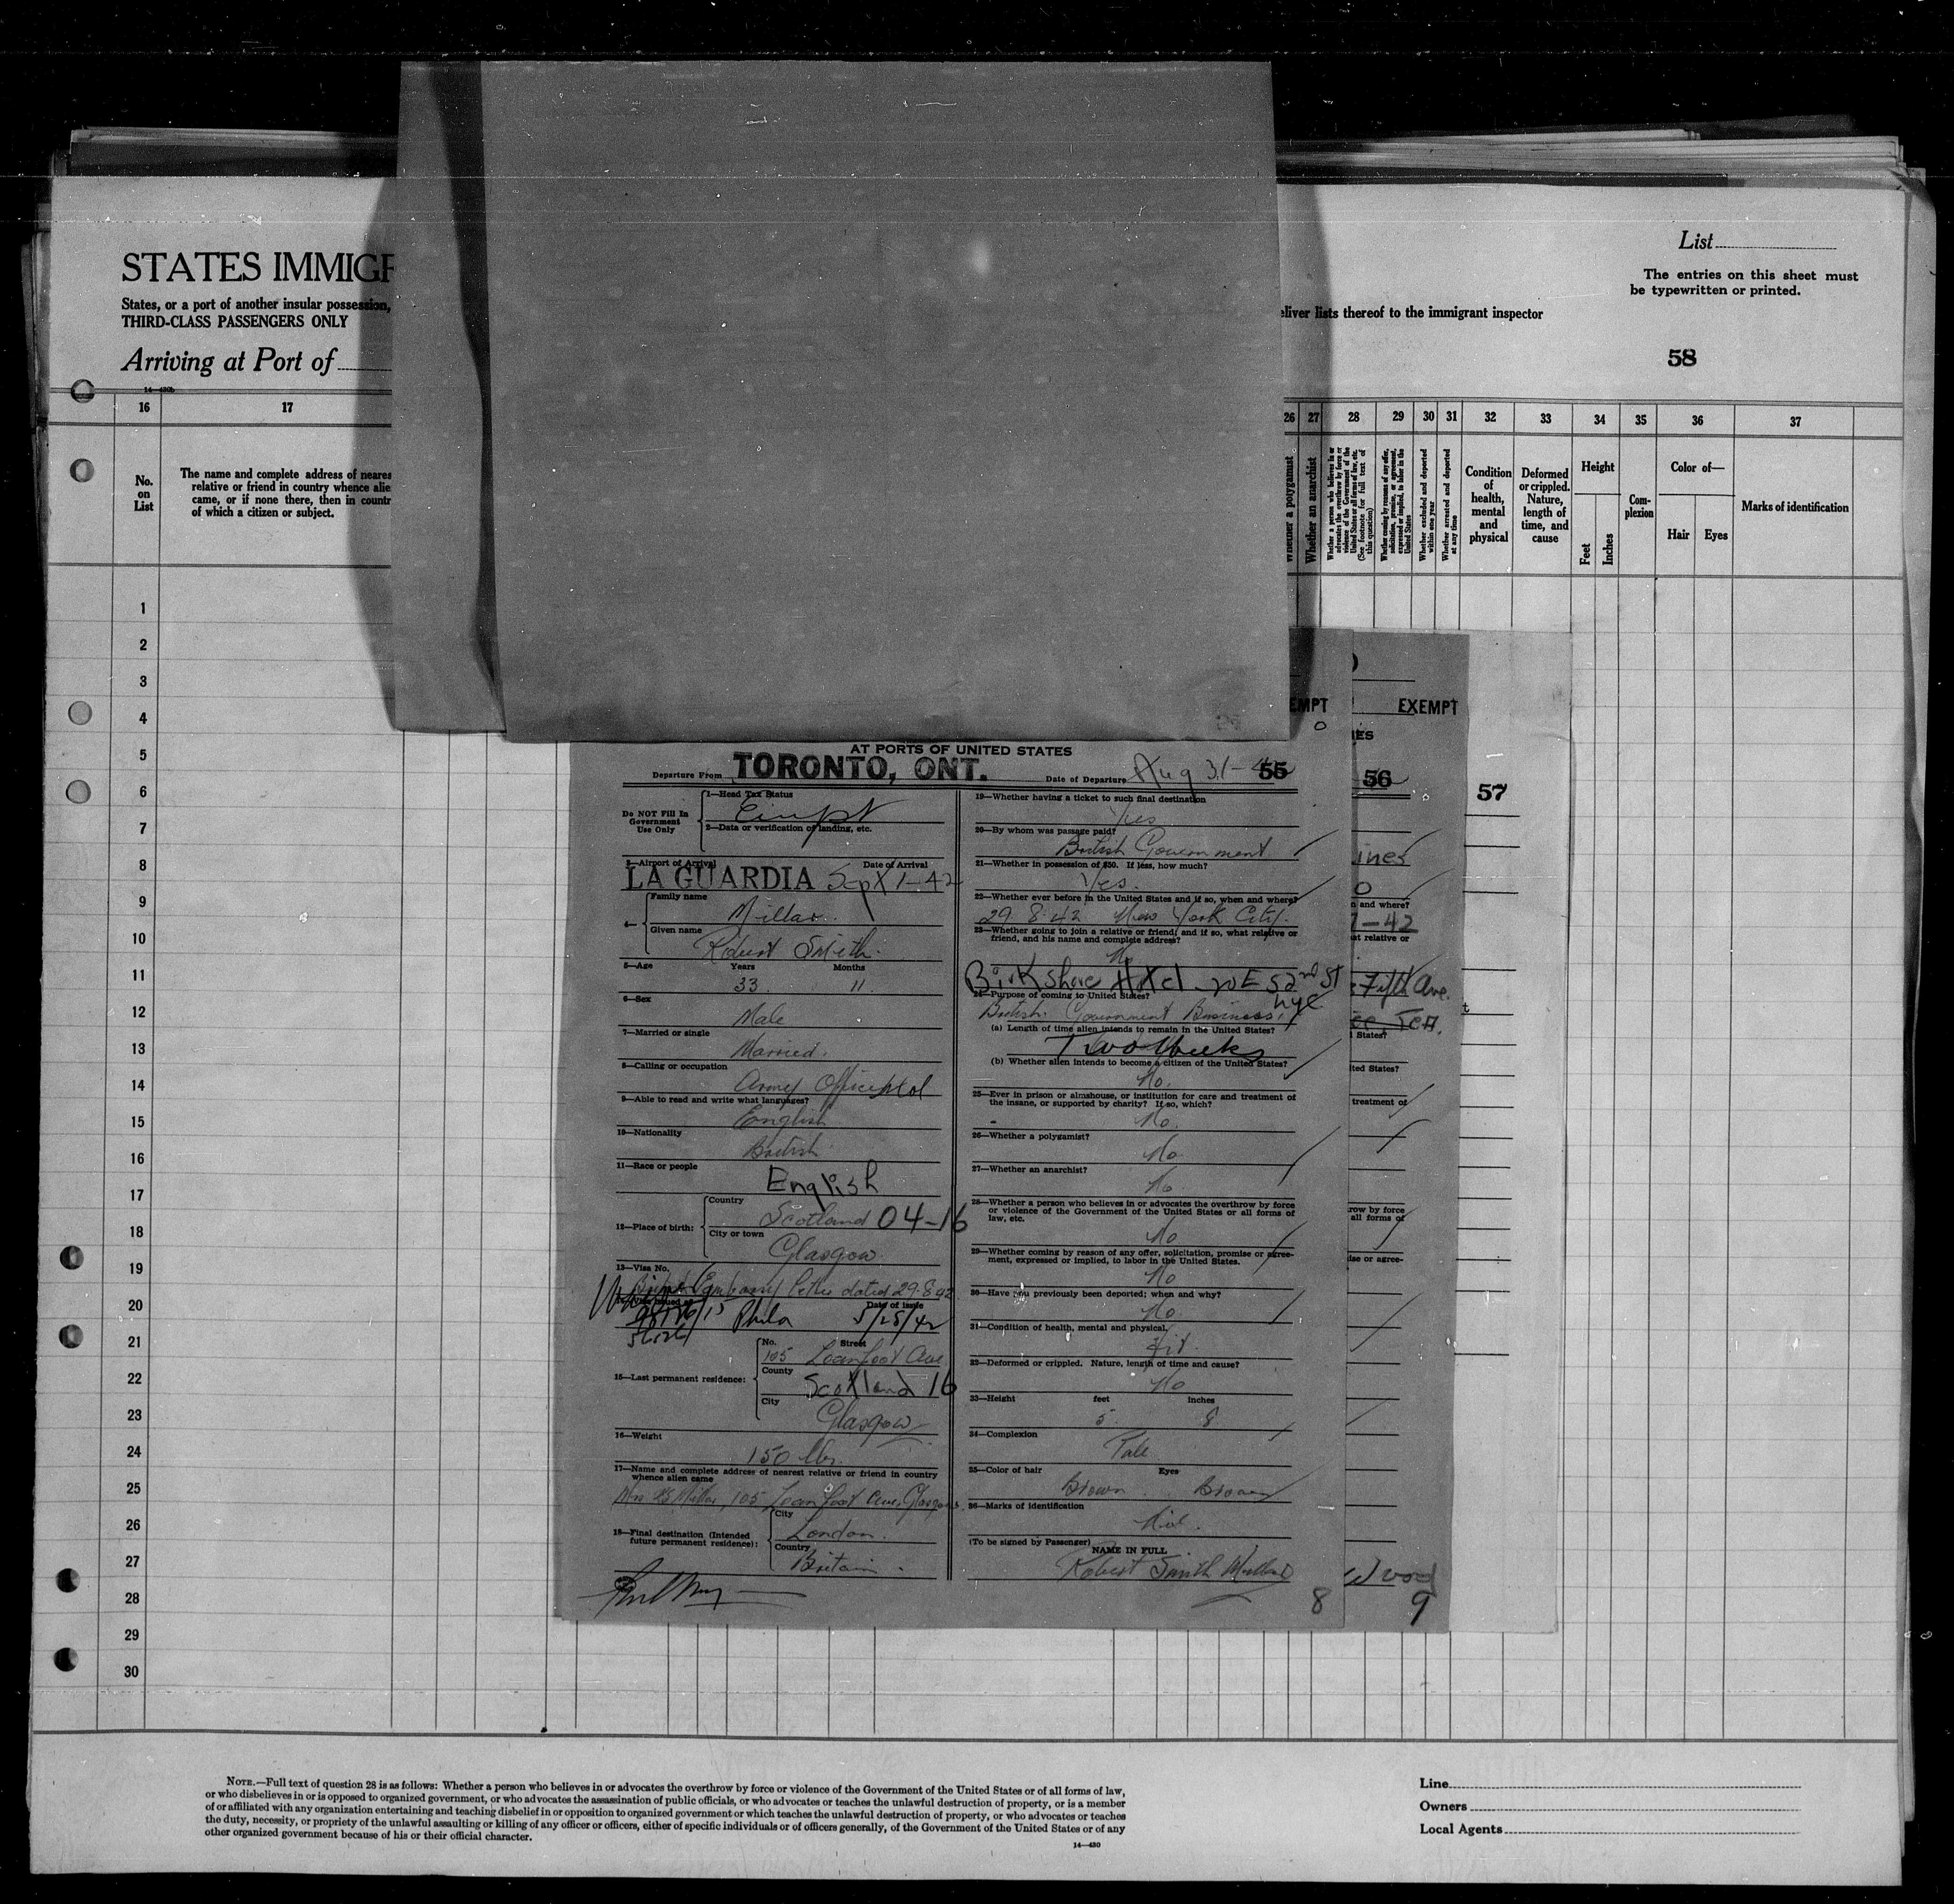 STATES IMMIGR
States, or a port of another insular possession,
THIRD-CLASS PASSENGERS ONLY
Arriving at Port of
14—430b
List
The entries on this sheet must
be typewritten or printed.
eliver lists thereof to the immigrant inspector
58
16 17 26 27 28 29 30 31 32 33 34 35 36 37
No.
on
List
The name and complete address of neares
relative or friend in country whence alie
came, or if none there, then in countr
of which a citizen or subject.
Whether a polygamist
Whether an anarchist
Whether a person who believes in or
advocates the overthrow by force or
violence of the Government of the
United States or all forms of law, etc.
(See footnote for full text of
this question)
Whether coming by reason of any offer,
solicitation, promise, or agreement,
expressed or implied, to labor in the
United States
Whether excluded and deported
within one year
Whether arrested and deported
at any time
Condition
of
health,
mental
and
physical
Deformed
or crippled.
Nature,
length of
time, and
cause
Height
Feet
Inches
Com-
plexion
Color of—
Hair Eyes
Marks of identification
1
2
3
4
5
6
7
8
9
10
11
12
13
14
15
16
17
18
19
20
21
22
23
24
25
26
27
28
29
30
EMPT
EXEMPT
AT PORTS OF UNITED STATES
Departure From TORONTO, ONT. Date of Departure Aug 31-42
55
56
57
Do NOT Fill In
Government
Use Only
1—Head Tax Status
2—Data or verification of landing, etc.
3—Airport of Arrival Date of Arrival
LA GUARDIA Sept 1-42
4— Family name
Millar
Given name
Robert Smith
5—Age Years Months
33 11
6—Sex
Male
7—Married or single
Married
8—Calling or occupation
Army Officer
9—Able to read and write what languages?
English
10—Nationality
British
11—Race or people
English
12—Place of birth: Country
Scotland 04-16
City or town
Glasgow
13—Visa No.
British Embassy letter dated 29.8.42
Date of issue
Phila 5/25/42
15—Last permanent residence: No. Street
105 Loanfoot Ave
County
Scotland 16
City
Glasgow
16—Weight
150 lbs.
17—Name and complete address of nearest relative or friend in country
whence alien came
Mrs Millar, 105 Loanfoot Ave, Glasgow.
18—Final destination (Intended
future permanent residence): City
London
Country
Britain
19—Whether having a ticket to such final destination
Yes
20—By whom was passage paid?
British Government
21—Whether in possession of $50. If less, how much?
Yes.
22—Whether ever before in the United States and if so, when and where?
29.8.42 New York City.
23—Whether going to join a relative or friend; and if so, what relative or
friend, and his name and complete address?
No
Birkshire Hotel 20 E 52nd St
nyc
24—Purpose of coming to United States?
British Government Business.
(a) Length of time alien intends to remain in the United States?
Two Weeks
(b) Whether alien intends to become a citizen of the United States?
No.
25—Ever in prison or almshouse, or institution for care and treatment of
the insane, or supported by charity? If so, which?
No.
26—Whether a polygamist?
No.
27—Whether an anarchist?
No.
28—Whether a person who believes in or advocates the overthrow by force
or violence of the Government of the United States or all forms of
law, etc.
No
29—Whether coming by reason of any offer, solicitation, promise or agree-
ment, expressed or implied, to labor in the United States.
No
30—Have you previously been deported; when and why?
No.
31—Condition of health, mental and physical.
Fit.
32—Deformed or crippled. Nature, length of time and cause?
No
33—Height feet inches
5 8
34—Complexion
Pale
35—Color of hair Eyes
Brown Brown
36—Marks of identification
Nil.
(To be signed by Passenger)
NAME IN FULL
Robert Smith Millar
8
ines
and where?
1-42
at relative or
Fifth Ave.
States?
ted States?
treatment of
row by force
all forms of
ise or agree-
Wood
9
NOTE.—Full text of question 28 is as follows: Whether a person who believes in or advocates the overthrow by force or violence of the Government of the United States or of all forms of law,
or who disbelieves in or is opposed to organized government, or who advocates the assassination of public officials, or who advocates or teaches the unlawful destruction of property, or is a member
of or affiliated with any organization entertaining and teaching disbelief in or opposition to organized government or which teaches the unlawful destruction of property, or who advocates or teaches
the duty, necessity, or propriety of the unlawful assaulting or killing of any officer or officers, either of specific individuals or of officers generally, of the Government of the United States or of any
other organized government because of his or their official character.
14—430
Line
Owners
Local Agents